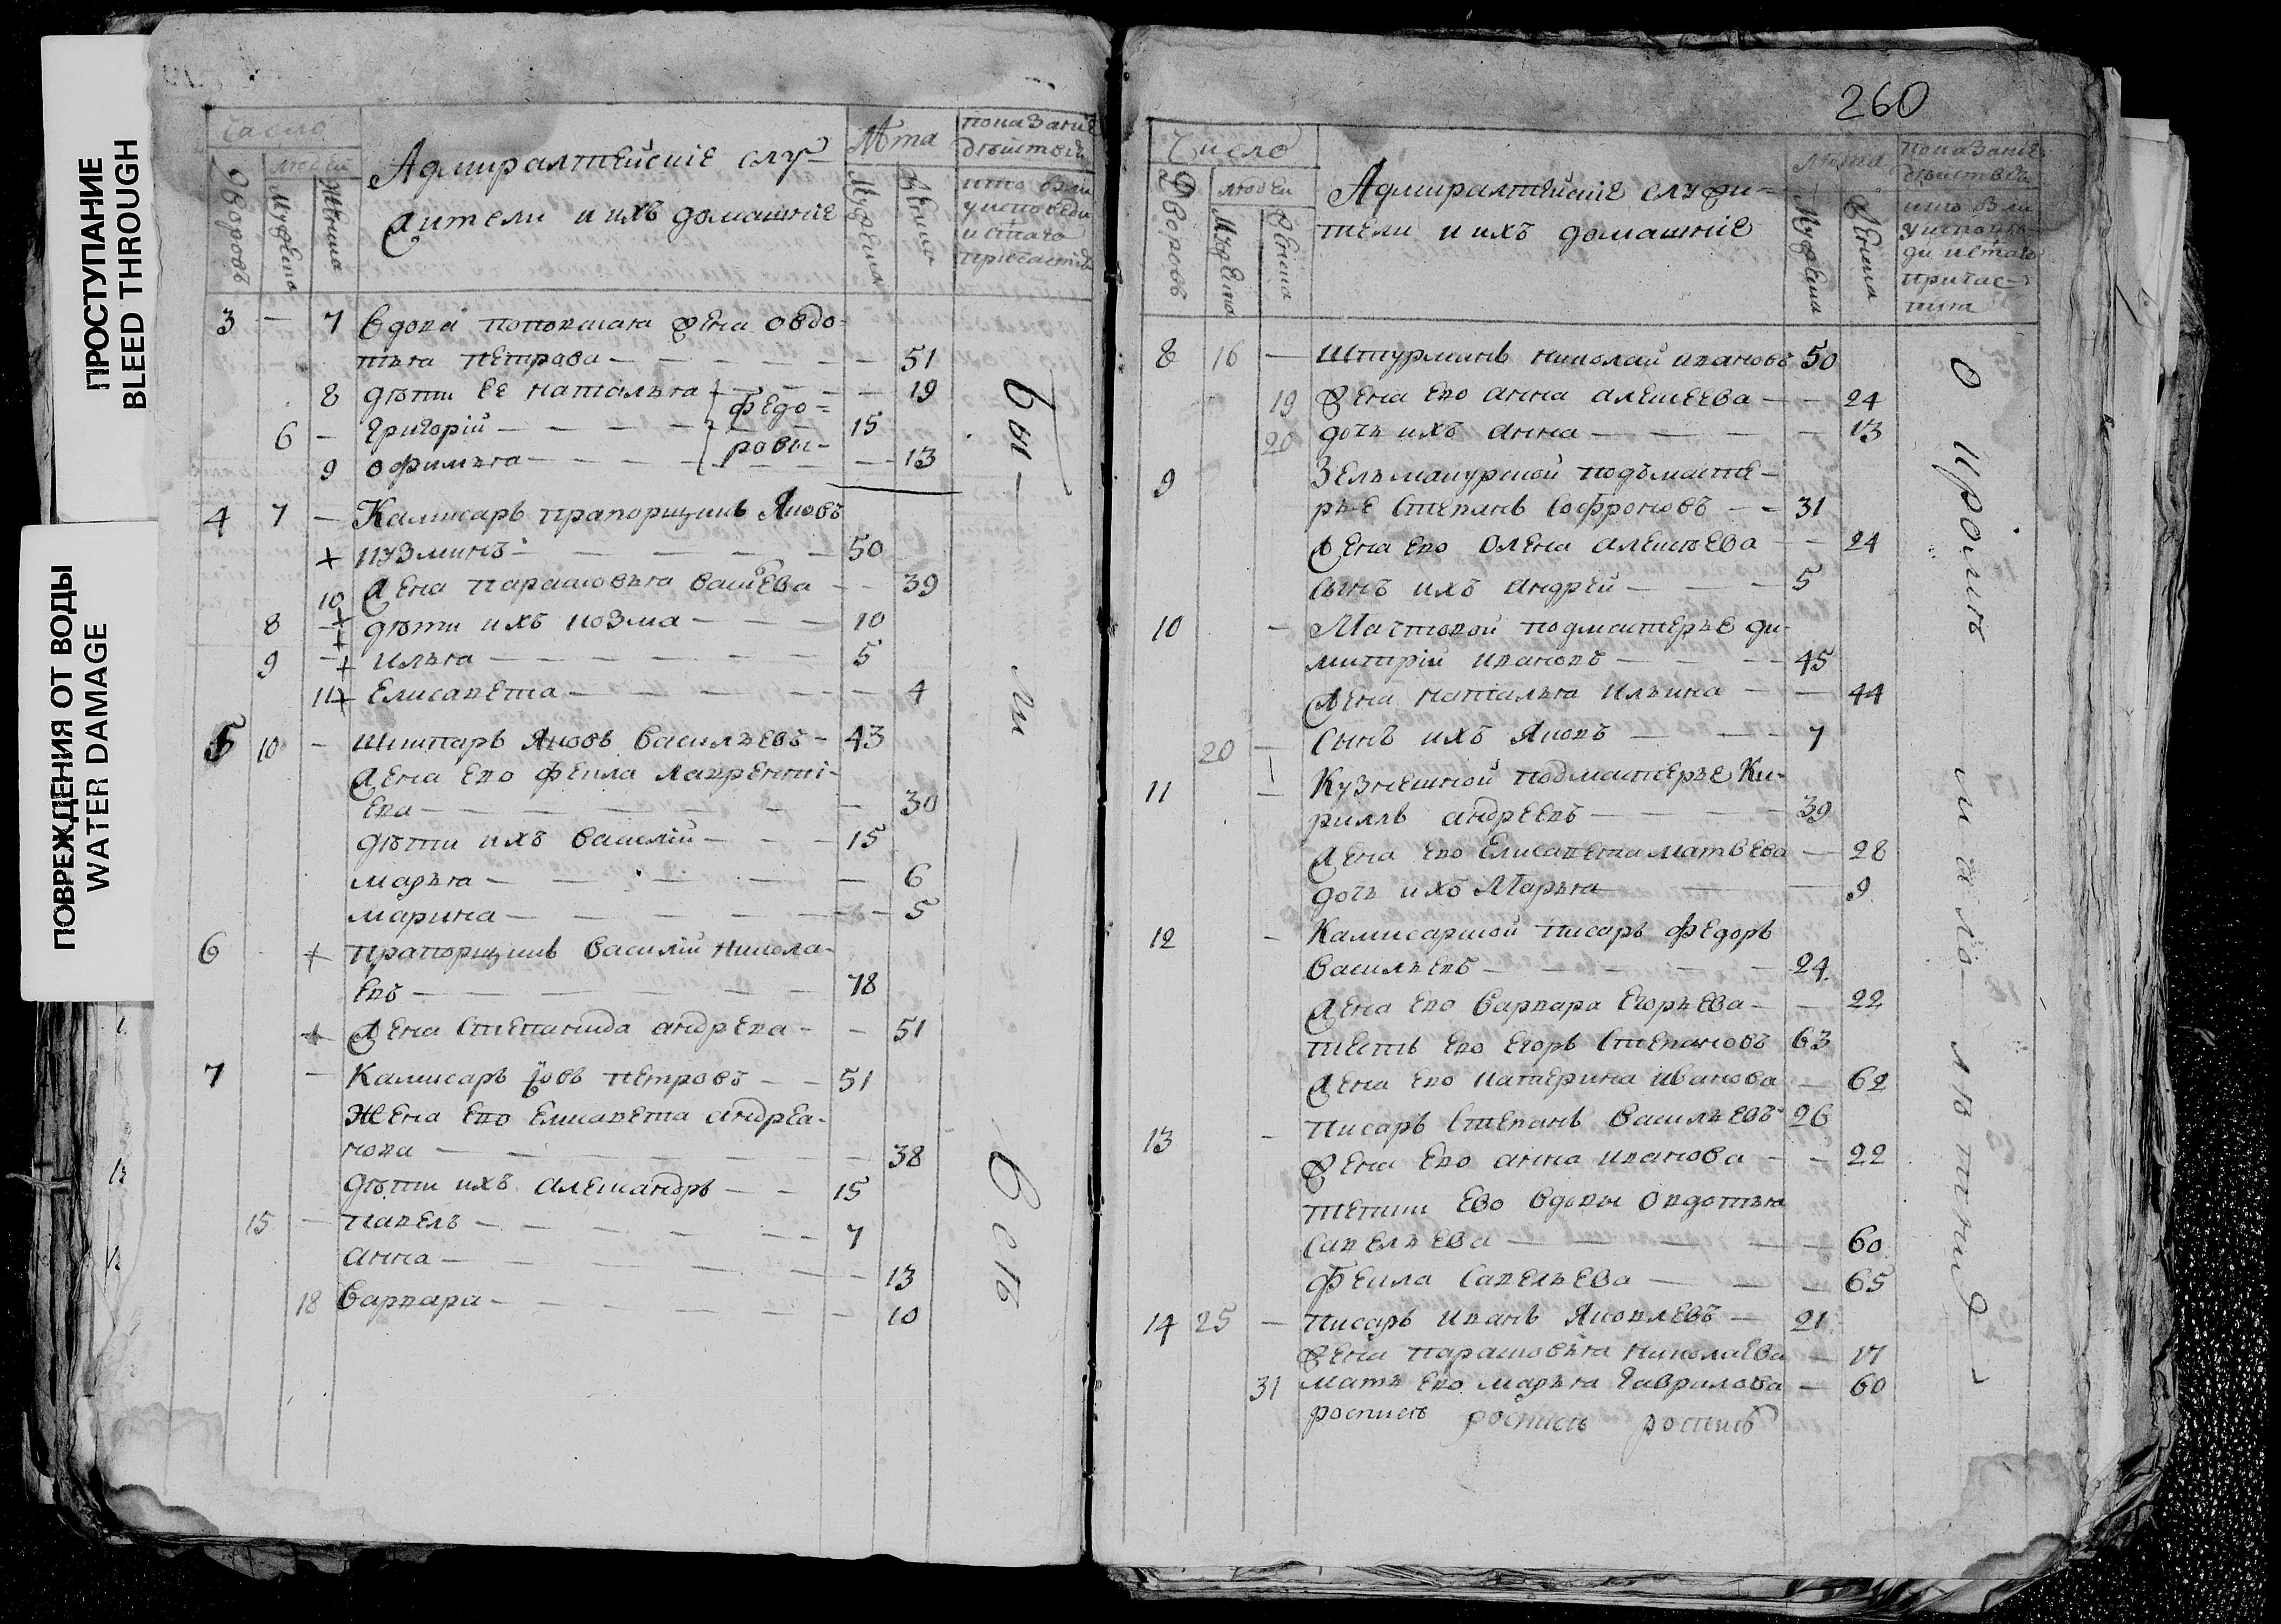 ПРОСТУПАНИЕ
BLEED THROUGH
ПОВРЕЖДЕНИЯ ОТ ВОДЫ
WATER DAMAGE
число
Дворовъ
людей
Мужеска
Женска
Адмиралтейскіе слу-
жители и ихъ домашніе
Лѣта
Мужеска
Женска
показаніе
действъ
кто былъ
у исповеди
и с̃таго
причастія
3 — 7 вдова попокшая жена овдо-
тья петрова — 51
8 дѣти ее наталья — 19
6 — григорій — 15
9 офимья — 13
федо-
ровы
4 7 — Камисаръ прапорщикъ Яковъ
+ кузминъ — 50
10 Жена парасковья васи́ева — 39
8 — + дѣти ихъ козма — 10
9 — + илья — 5
11 + Елисавета — 4
5 10 — Шкипаръ Яковъ васильевъ — 43
Жена ево фекла лавренті-
ева — 30
дѣти ихъ василій — 15
марья — 6
марина — 5
6 + прапорщикъ василій никола-
евъ — 78
+ Жена степанида андрева — 51
7 — Камисаръ іовъ петровъ — 51
Жена ево Елисавета андреа-
нова — 38
дѣти ихъ александръ — 15
15 — павелъ — 7
анна — 13
18 варвара — 10
бы — ли — всѣ
260
Число
Дворовъ
людеи
Мужеска
Женска
Адмиралтейскіе служи-
тели и ихъ домашніе
лѣта
Мужеска
Женска
показаніе
действа
кто былъ
у исповѣ-
ди и с̃таго
причас-
тия
8 16 — Штурманъ николаи ивановъ 50
19 Жена ево анна алексеева — 24
20 дочь ихъ анна — 13
9 Зельманурской подъмасте-
рье степанъ софроновъ — 31
Жена ево олена алексѣева — 24
сынъ ихъ андрей — 5
10 — Мачтовой подмастерье ди-
митрій ивановъ — 45
Жена наталья ильина — 44
20 — сынъ ихъ Яковъ — 7
11 — Кузнешной подмастерье Ки-
риллъ андреевъ — 39
Жена ево Елисавета матвева — 28
дочь ихъ Марья — 9
12 — Камисарской писарь федоръ
васильевъ — 24
Жена ево варвара Егорьева — 22
тесть ево егоръ степановъ 63
Жена ево катерина иванова — 62
13 — писарь степанъ васильевъ 26
Жена ево анна иванова — 22
тетки ево вдовы овдотья
савельева — 60
фекла савельева — 65
14 25 — писарь иванъ Яковлевъ — 21
Жена парасковья николаева — 17
31 мать ево марья гаврилова — 60
роспись роспись роспись